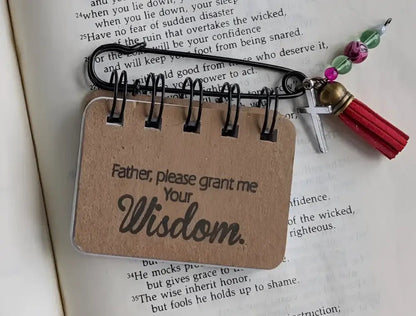 24when you lie down, you
when you lie down, your sleep
25Have no fear of sudden disaster
or the ruin that overtakes the wicked,
26
and will keep your foot from being snared.
good from those who deserve it,
your power to act.
Father, please grant me
Your
Wisdom.
nfidence.
of the wicked,
righteous.
34He mocks
but gives grace to
35The wise inherit honor,
but fools he holds up to shame.
instruction;